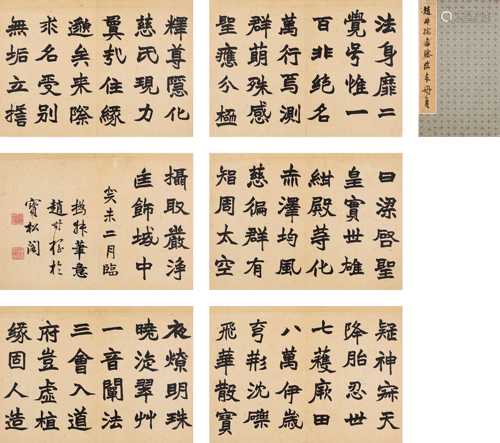 法身靡二
覺号惟一
百非絕名
萬行焉測
群萌殊感
聖應分極
釋尊隱化
慈氏現力
住緣
邈矣來際
求名受別
無垢立
曰梁啓聖
皇實世雄
紺殿等化
赤澤均風
慈徧群有
智周太空
攝取嚴淨
匡飾城中
癸未二月臨
筆意
趙叔孺於
寶松閣
疑神寐天
降胎忍世
七蕿厥田
八萬伊歲
穹荆沈礫
飛華散寶
夜燎明珠
曉旋翠艸
一音闡法
三會入道
府豈虛植
緣固人造